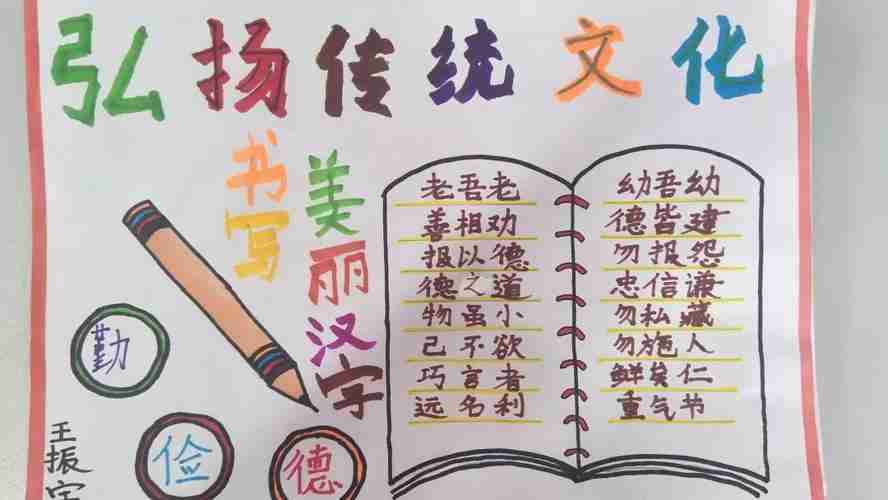 弘扬传统文化
书写
美丽汉字
老吾老
善相劝
报以德
德之道
物虽小
己不欲
巧言者
远名利
幼吾幼
德皆建
勿报怨
忠信谦
勿私藏
勿施人
鲜矣仁
重气节
勤
俭
德
王振